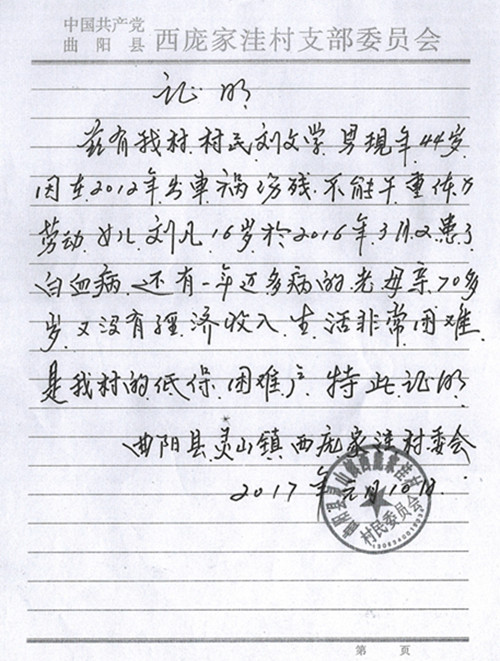 中国共产党
曲阳县 西庞家洼村支部委员会
证明
兹有我村村民刘文学男現年44岁
因在2012年出車祸伤残不能干重体力
劳动.女儿刘凡16岁於2016年3月又患了
白血病.还有一年迈多病的老母亲.70多
岁又没有經济收入生活非常困难
是我村的低保困难户特此证明
曲阳县灵山镇西庞家洼村委会
2017年元月10日.
村民委员会
第 页